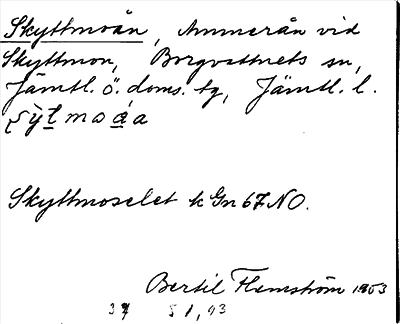 Skyttmoån, Ammerån vid
Skyttmon, Borgvattnets sn,
Jämtl. ö. doms. tg, Jämtl. l.
Skyttmoselet k Gn 67 NO.
Bertil Flemström 1953